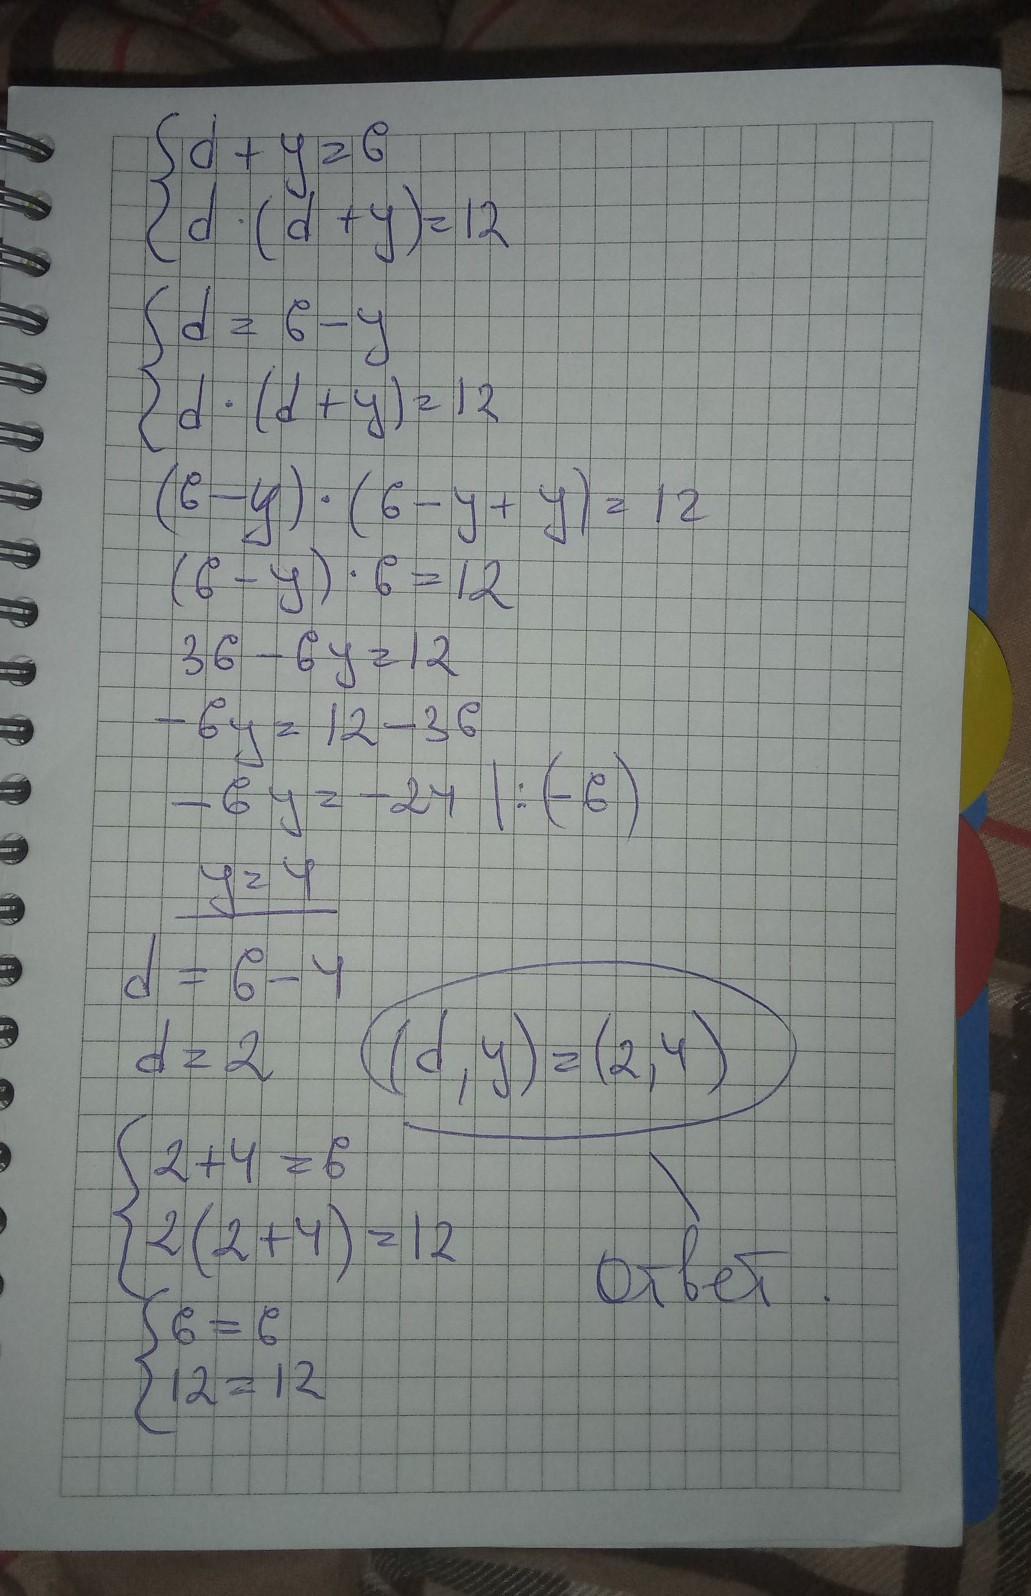 {d + y = 6
{d · (d + y) = 12
{d = 6 - y
{d · (d + y) = 12
(6 - y) · (6 - y + y) = 12
(6 - y) · 6 = 12
36 - 6y = 12
-6y = 12 - 36
-6y = -24 |:(-6)
y = 4
d = 6 - 4
d = 2 (d, y) = (2, 4)
{2 + 4 = 6
{2(2 + 4) = 12
ответ.
{6 = 6
{12 = 12